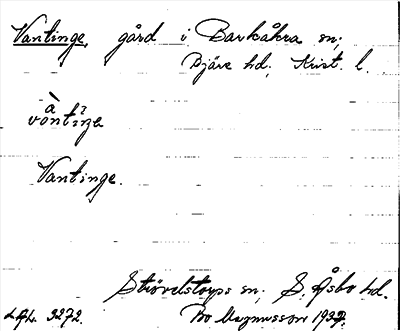 Vantinge, gård i Barkåkra sn;
Bjäre hd, Krist. l.
vòntịŋe
Vantinge.
Strövelstorps sn; S. Åsbo hd.
LAL. 3272. Bo Magnusson 1932.